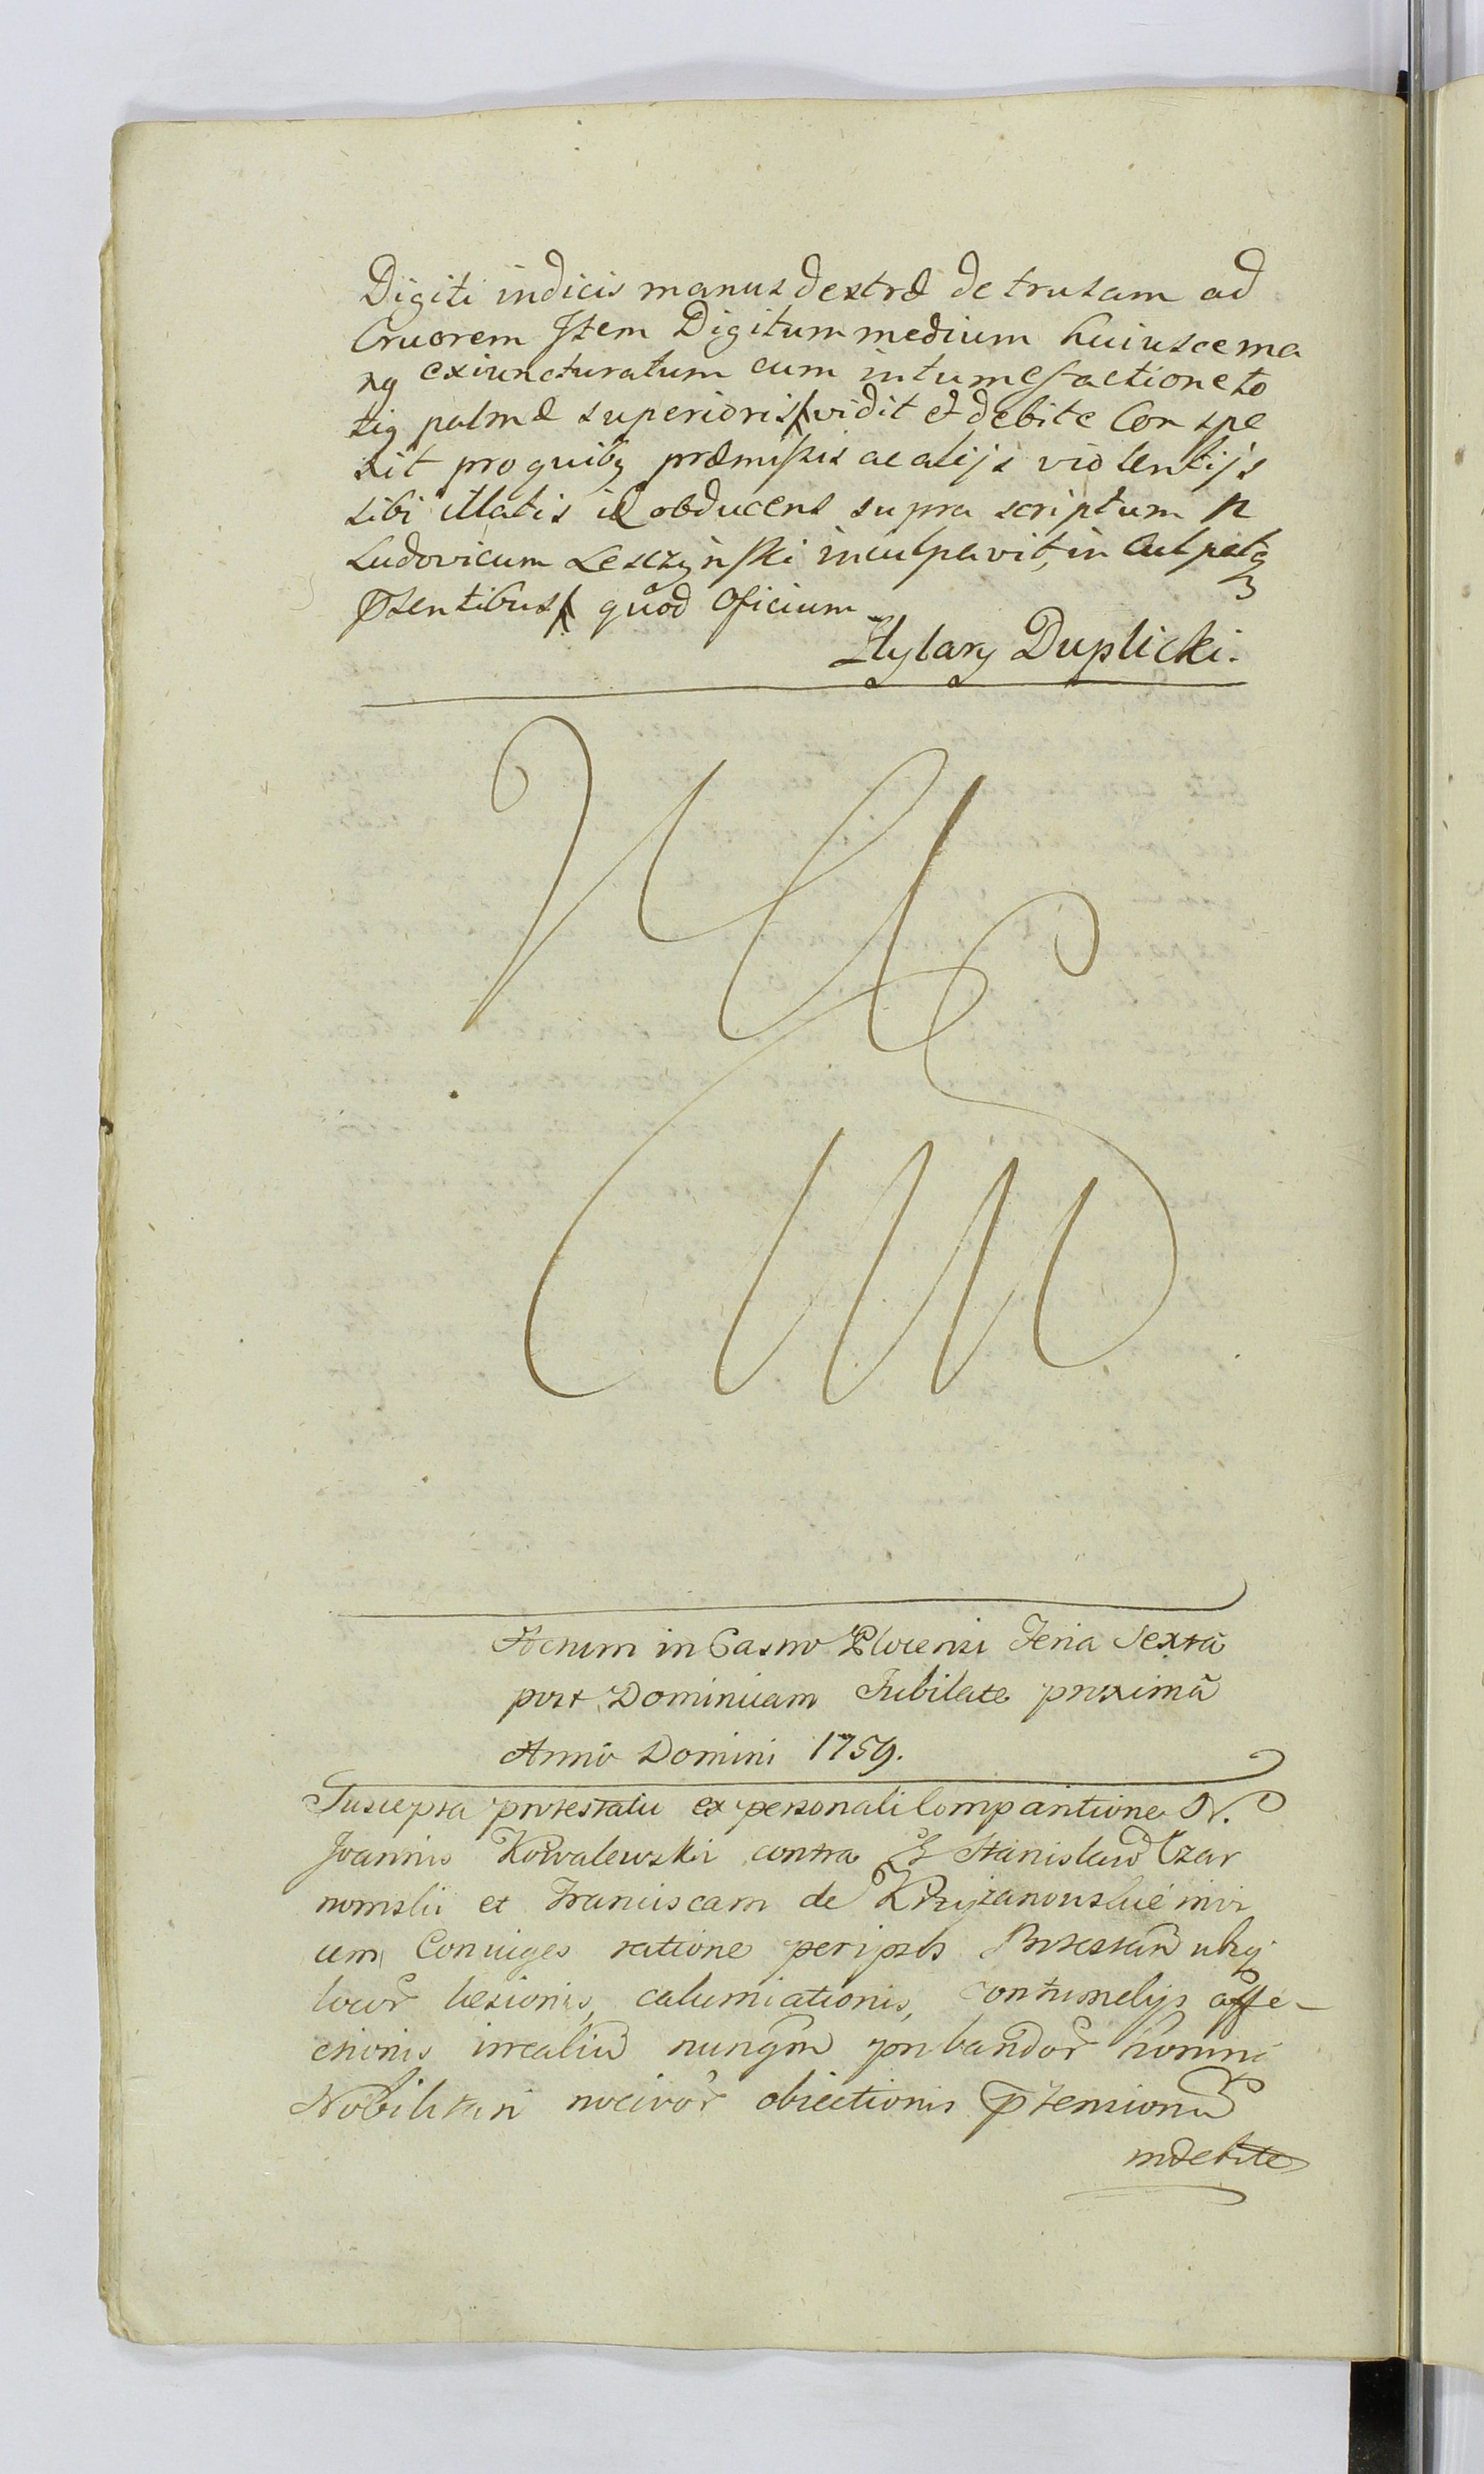 Digiti indicis manus dextræ detrusam ad
Cruorem Item Digitum medium huiusce ma
nꝰ exiuncturatum cum intumefactione to
tiꝰ palmæ superioris vidit et debite Conspe
xit pro quibꝰ præmissis ac alijs violentijs
sibi illatis id obducens supra scriptum N
Ludovicum Leszczynski inculpavit, in Culpatꝰ
Pñsentibus quod Oficium
Hylary Duplicki.
Actum in Castro Plocensi Feria Sexta
post Dominicam Jubilate proximã
Anno Domini 1759.
Suscepta protestatio ex personali Comparitione N.
Joannis Kowalewski contra G Stanislaũ Czar
nomskii et Franciscam de Krzyzanowskie invi
cem Coniuges ratione per ipsos Protestañ ubiꝗ
locoř læsionis, calumniationis, contumelijs affe-
ctionis irrealiũ nunqm̃ probandoř homini
Nobilitari nocivoř obiectionis Ptensionũ
indebite